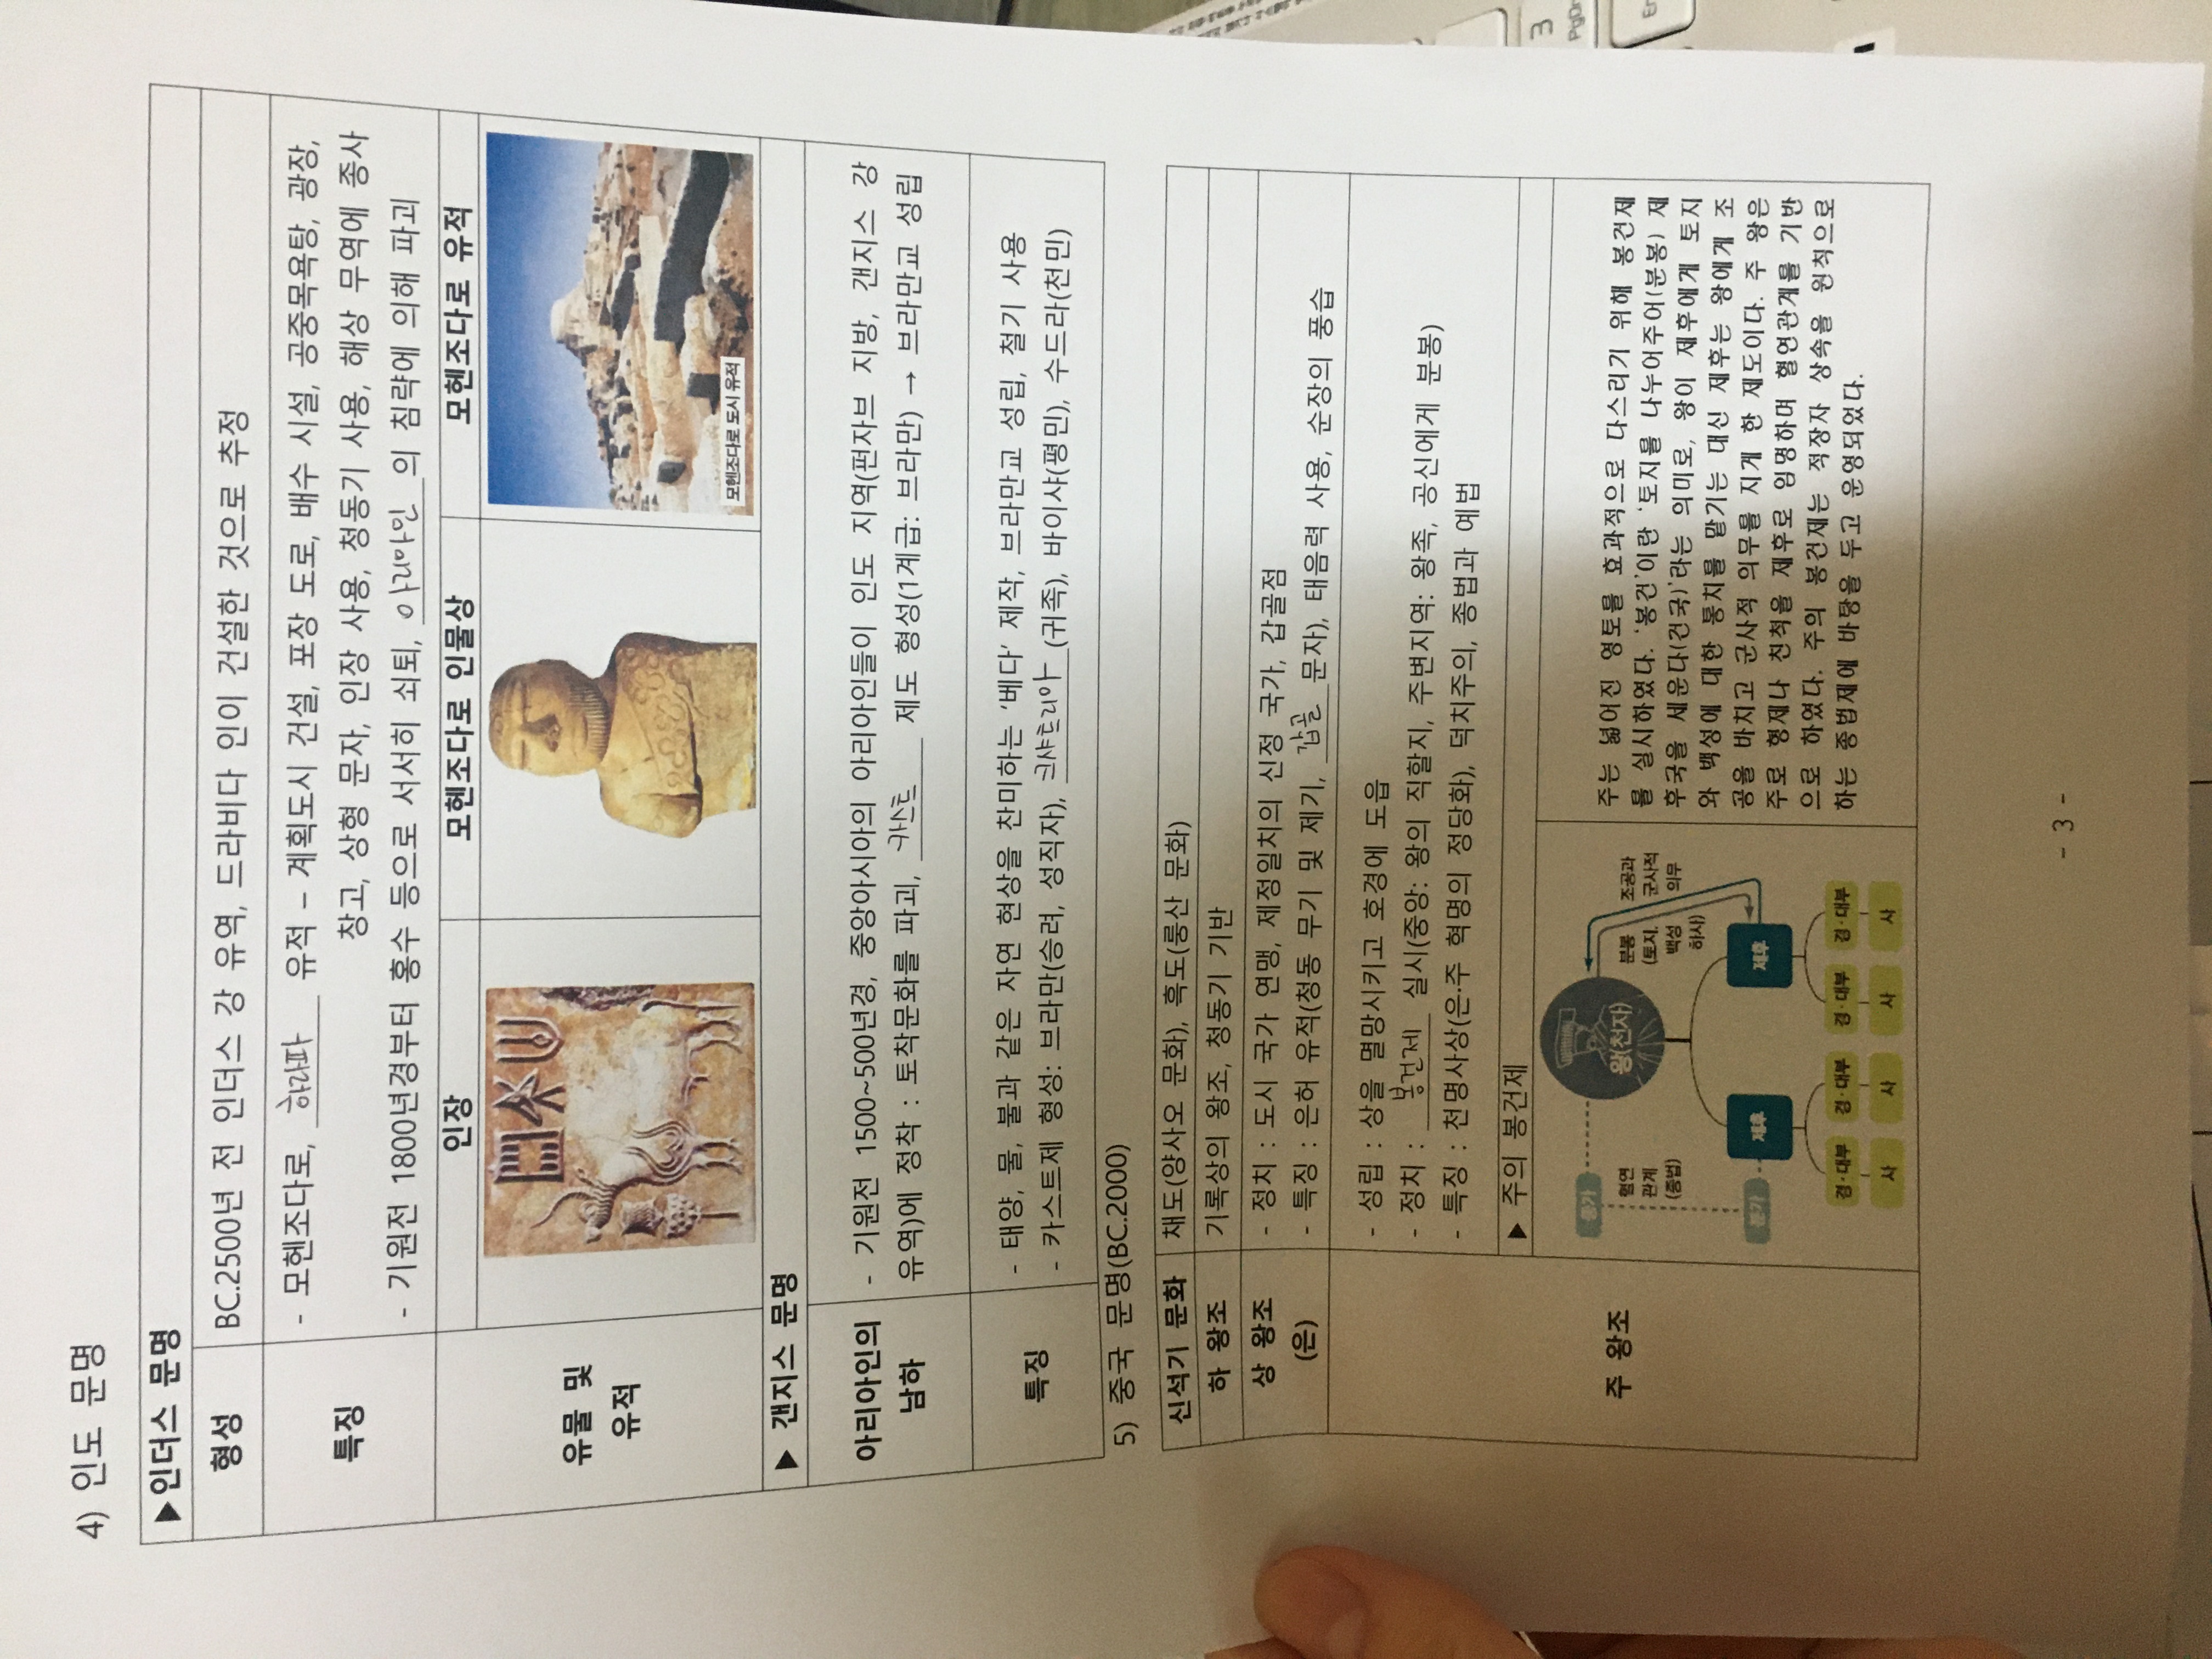 4) 인도 문명
▶인더스 문명
형성
BC.2500년 전 인더스 강 유역, 드라비다 인이 건설한 것으로 추정
특징
- 모헨조다로, 하라파 유적 – 계획도시 건설, 포장 도로, 배수 시설, 공중목욕탕, 광장,
창고, 상형 문자, 인장 사용, 청동기 사용, 해상 무역에 종사
- 기원전 1800년경부터 홍수 등으로 서서히 쇠퇴, 아리아인의 침략에 의해 파괴
유물 및
유적
인장
모헨조다로 인물상
모헨조다로 유적
모헨조다로 도시 유적
▶ 갠지스 문명
아리아인의
남하
- 기원전 1500~500년경, 중앙아시아의 아리아인들이 인도 지역(펀자브 지방, 갠지스 강
유역)에 정착 : 토착문화를 파괴, 카스트 제도 형성(1계급: 브라만) → 브라만교 성립
특징
- 태양, 물, 불과 같은 자연 현상을 찬미하는 ‘베다’ 제작, 브라만교 성립, 철기 사용
- 카스트제 형성: 브라만(승려, 성직자), 크샤트리아(귀족), 바이샤(평민), 수드라(천민)
5) 중국 문명(BC.2000)
신석기 문화
채도(양사오 문화), 흑도(룽산 문화)
하 왕조
기록상의 왕조, 청동기 기반
상 왕조
(은)
- 정치 : 도시 국가 연맹, 제정일치의 신정 국가, 갑골점
- 특징 : 은허 유적(청동 무기 및 제기, 갑골 문자), 태음력 사용, 순장의 풍습
주 왕조
- 성립 : 상을 멸망시키고 호경에 도읍
- 정치 : 봉건제 실시(중앙: 왕의 직할지, 주변지역: 왕족, 공신에게 분봉)
- 특징 : 천명사상(은·주 혁명의 정당화), 덕치주의, 종법과 예법
▶ 주의 봉건제
종가
왕(천자)
혈연
관계
(종법)
분봉
(토지,
백성
하사)
조공과
군사적
의무
분가
제후
제후
경·대부
경·대부
경·대부
경·대부
사
사
사
사
주는 넓어진 영토를 효과적으로 다스리기 위해 봉건제
를 실시하였다. ‘봉건’이란 ‘토지를 나누어주어(분봉) 제
후국을 세운다(건국)’라는 의미로, 왕이 제후에게 토지
와 백성에 대한 통치를 맡기는 대신 제후는 왕에게 조
공을 바치고 군사적 의무를 지게 한 제도이다. 주 왕은
주로 형제나 친척을 제후로 임명하며 혈연관계를 기반
으로 하였다. 주의 봉건제는 적장자 상속을 원칙으로
하는 종법제에 바탕을 두고 운영되었다.
- 3 -
3
PgDn